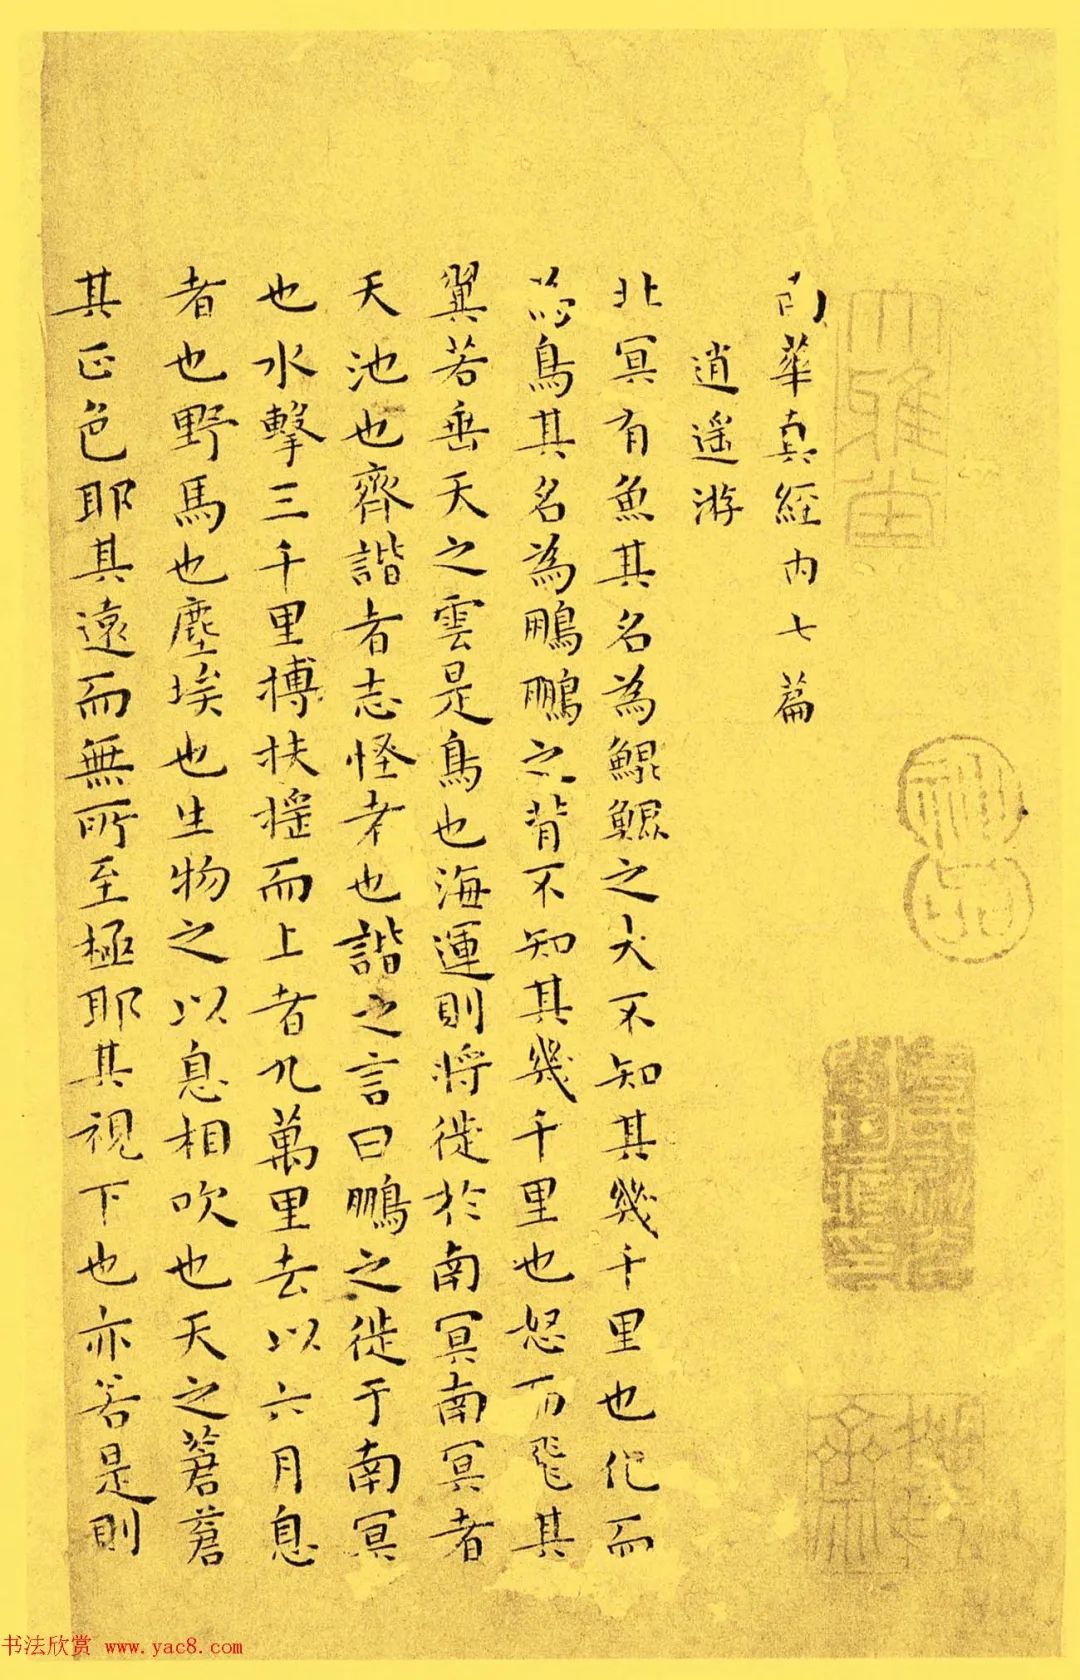 南華真經內七篇
逍遥游
北冥有魚其名為鯤鯤之大不知其幾千里也化而
為鳥其名為鵬鵬之背不知其幾千里也怒而飛其
翼若垂天之雲是鳥也海運則將徙於南冥南冥者
天池也齊諧者志怪者也諧之言曰鵬之徙于南冥
也水擊三千里搏扶摇而上者九萬里去以六月息
者也野馬也塵埃也生物之以息相吹也天之蒼蒼
其正色耶其遠而無所至極耶其視下也亦若是則
大雅堂
书法欣赏 www.yac8.com